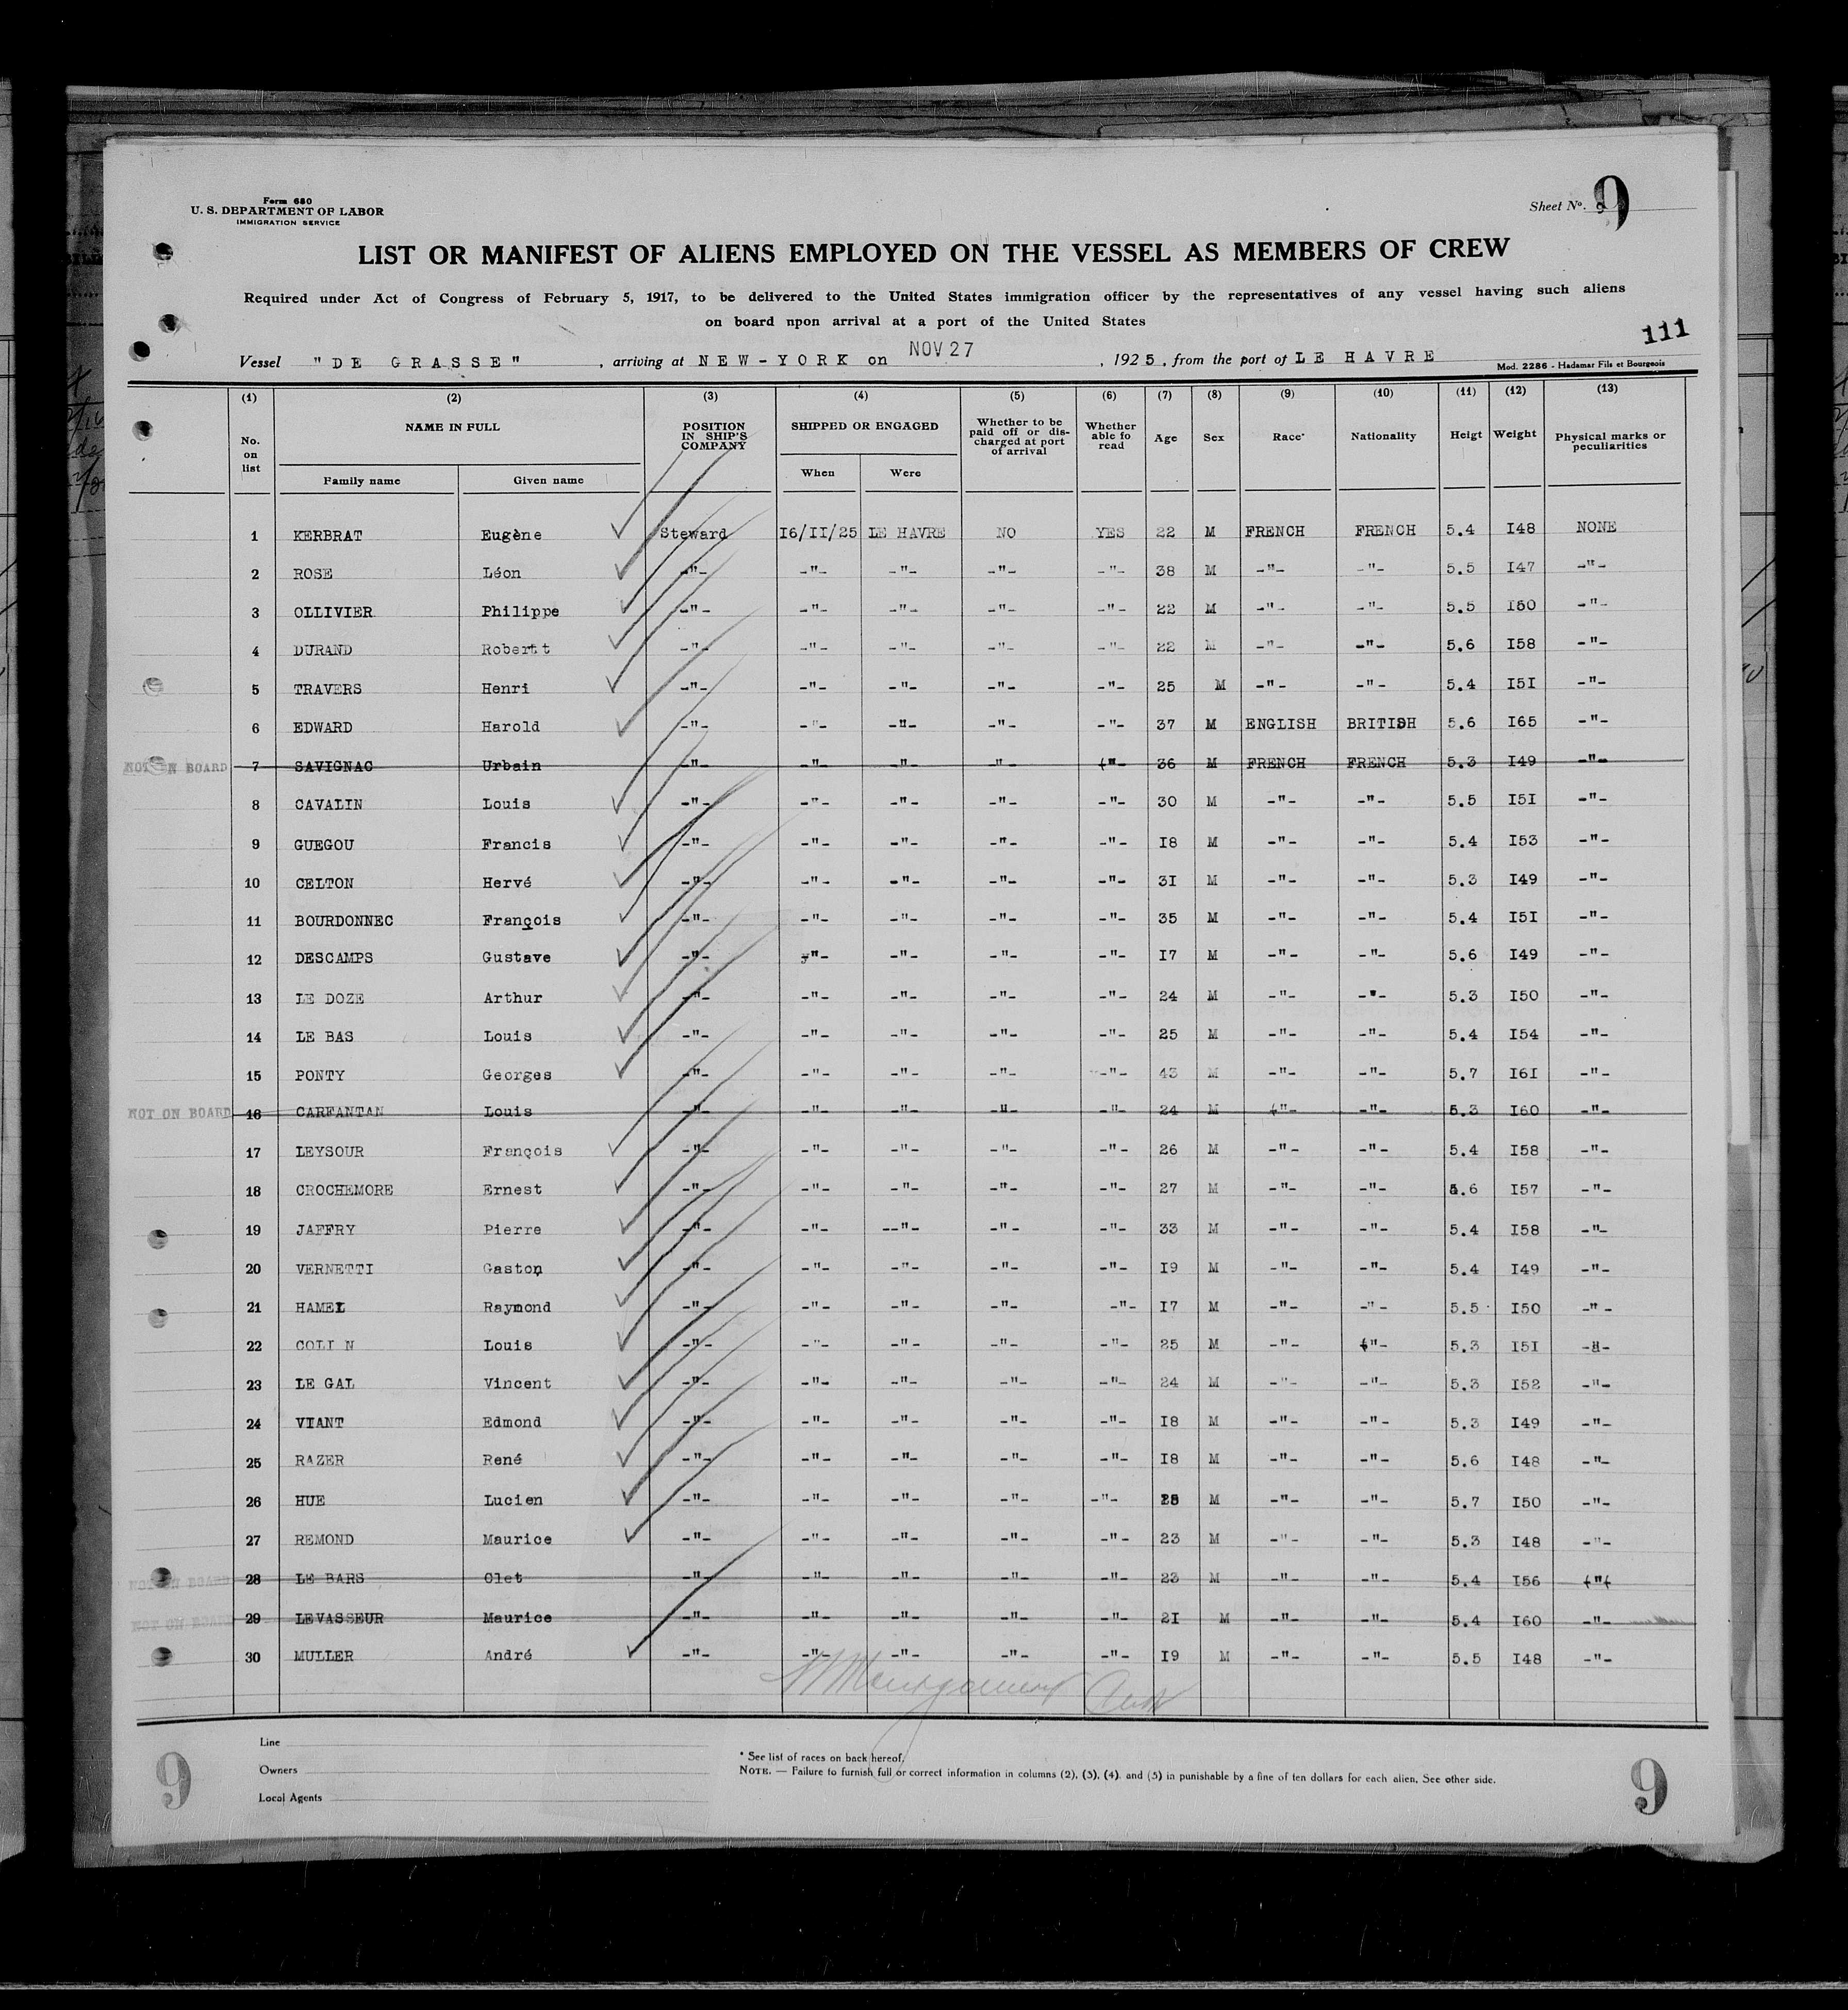 Form 680
U. S. DEPARTMENT OF LABOR
IMMIGRATION SERVICE
Sheet No. 9
LIST OR MANIFEST OF ALIENS EMPLOYED ON THE VESSEL AS MEMBERS OF CREW
Required under Act of Congress of February 5, 1917, to be delivered to the United States immigration officer by the representatives of any vessel having such aliens
on board npon arrival at a port of the United States
111
Vessel "DE GRASSE", arriving at NEW-YORK on NOV 27, 1925, from the port of LE HAVRE
Mod. 2286 - Hadamar Fils et Bourgeois
(1) (2) (3) (4) (5) (6) (7) (8) (9) (10) (11) (12) (13)
No. on list NAME IN FULL POSITION IN SHIP'S COMPANY SHIPPED OR ENGAGED Whether to be paid off or discharged at port of arrival Whether able fo read Age Sex Race* Nationality Heigt Weight Physical marks or peculiarities
Family name Given name When Were
1 KERBRAT Eugène Steward 16/11/25 LE HAVRE NO YES 22 M FRENCH FRENCH 5.4 148 NONE
2 ROSE Léon -"- -"- -"- -"- -"- 38 M -"- -"- 5.5 147 -"-
3 OLLIVIER Philippe -"- -"- -"- -"- -"- 22 M -"- -"- 5.5 150 -"-
4 DURAND Robertt -"- -"- -"- -"- -"- 22 M -"- -"- 5.6 158 -"-
5 TRAVERS Henri -"- -"- -"- -"- -"- 25 M -"- -"- 5.4 151 -"-
6 EDWARD Harold -"- -"- -"- -"- -"- 37 M ENGLISH BRITISH 5.6 165 -"-
NOT ON BOARD 7 SAVIGNAC Urbain -"- -"- -"- -"- -"- 36 M FRENCH FRENCH 5.3 149 -"-
8 CAVALIN Louis -"- -"- -"- -"- -"- 30 M -"- -"- 5.5 151 -"-
9 GUEGOU Francis -"- -"- -"- -"- -"- 18 M -"- -"- 5.4 153 -"-
10 CELTON Hervé -"- -"- -"- -"- -"- 31 M -"- -"- 5.3 149 -"-
11 BOURDONNEC François -"- -"- -"- -"- -"- 35 M -"- -"- 5.4 151 -"-
12 DESCAMPS Gustave -"- -"- -"- -"- -"- 17 M -"- -"- 5.6 149 -"-
13 LE DOZE Arthur -"- -"- -"- -"- -"- 24 M -"- -"- 5.3 150 -"-
14 LE BAS Louis -"- -"- -"- -"- -"- 25 M -"- -"- 5.4 154 -"-
15 PONTY Georges -"- -"- -"- -"- -"- 43 M -"- -"- 5.7 161 -"-
NOT ON BOARD 16 CARFANTAN Louis -"- -"- -"- -"- -"- 24 M -"- -"- 5.3 160 -"-
17 LEYSOUR François -"- -"- -"- -"- -"- 26 M -"- -"- 5.4 158 -"-
18 CROCHEMORE Ernest -"- -"- -"- -"- -"- 27 M -"- -"- 5.6 157 -"-
19 JAFFRY Pierre -"- -"- --"- -"- -"- 33 M -"- -"- 5.4 158 -"-
20 VERNETTI Gaston -"- -"- -"- -"- -"- 19 M -"- -"- 5.4 149 -"-
21 HAMEL Raymond -"- -"- -"- -"- -"- 17 M -"- -"- 5.5 150 -"-
22 COLI N Louis -"- -"- -"- -"- -"- 25 M -"- -"- 5.3 151 -"-
23 LE GAL Vincent -"- -"- -"- -"- -"- 24 M -"- -"- 5.3 152 -"-
24 VIANT Edmond -"- -"- -"- -"- -"- 18 M -"- -"- 5.3 149 -"-
25 RAZER René -"- -"- -"- -"- -"- 18 M -"- -"- 5.6 148 -"-
26 HUE Lucien -"- -"- -"- -"- -"- M -"- -"- 5.7 150 -"-
27 REMOND Maurice -"- -"- -"- -"- -"- 23 M -"- -"- 5.3 148 -"-
NOT ON BOARD 28 LE BARS Clet -"- -"- -"- -"- -"- 23 M -"- -"- 5.4 156 ("(
NOT ON BOARD 29 LEVASSEUR Maurice -"- -"- -"- -"- -"- 21 M -"- -"- 5.4 160 -"-
30 MULLER André -"- -"- -"- -"- -"- 19 M -"- -"- 5.5 148 -"-
Line
Owners
Local Agents
* See list of races on back hereof.
NOTE. — Failure to furnish full or correct information in columns (2), (3), (4), and (5) in punishable by a fine of ten dollars for each alien, See other side.
9
9